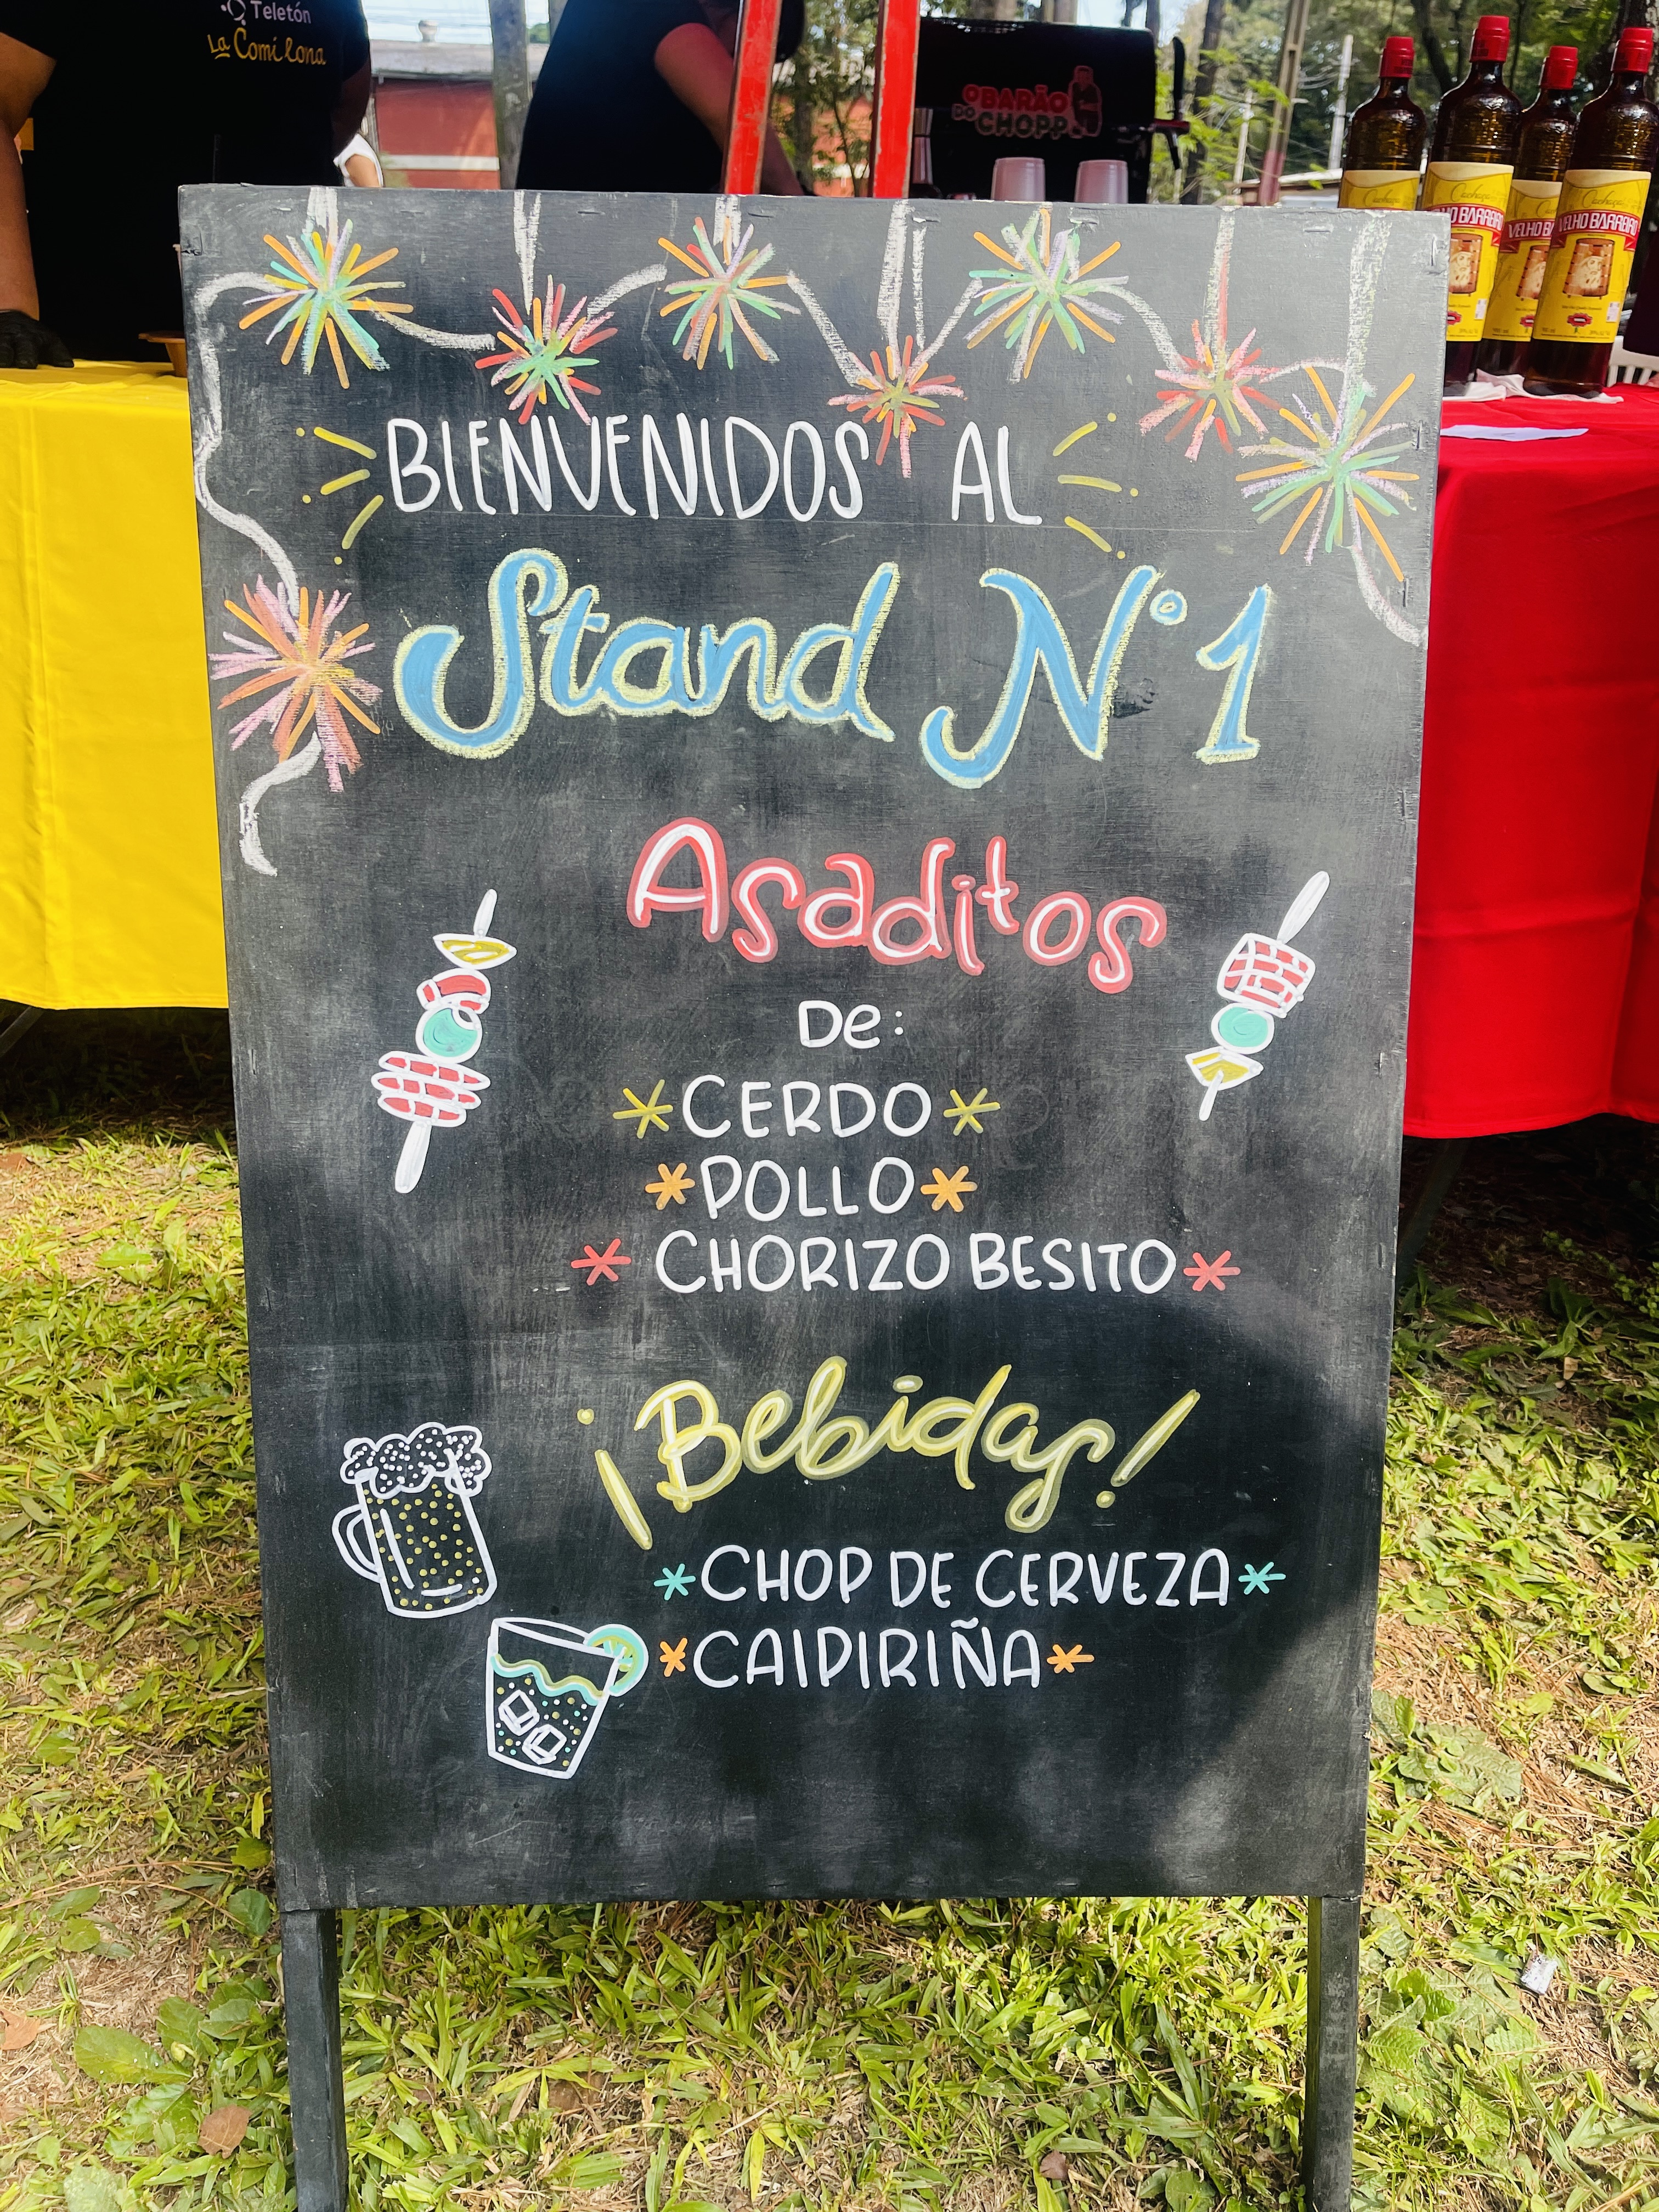 Teletón
La Comilona
O BARÃO
DO CHOPP
Cachaça
VELHO BARREIRO
BIENVENIDOS AL
Stand N° 1
Asaditos
De:
CERDO
POLLO
CHORIZO BESITO
¡Bebidas!
CHOP DE CERVEZA
CAIPIRIÑA